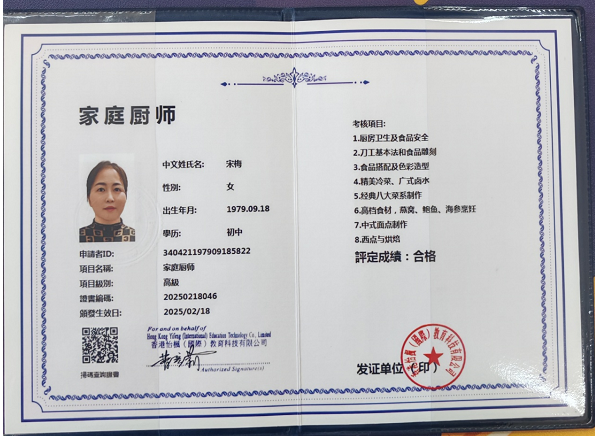 家庭厨师
中文姓名: 宋梅
性别: 女
出生年月: 1979.09.18
學历: 初中
申請者ID: 340421197909185822
項目名稱: 家庭厨师
項目級別: 高級
證書編碼: 20250218046
頒發生效日: 2025/02/18
For and on behalf of
Hong Kong Yifeng (International) Education Technology Co., Limited
香港怡楓（國際）教育科技有限公司
Authorized Signature(s)
掃碼查詢證書
考核項目:
1.厨房卫生及食品安全
2.刀工基本法和食品雕刻
3.食品搭配及色彩造型
4.精美冷菜、广式卤水
5.经典八大菜系制作
6.高档食材，燕窝、鲍鱼、海参烹饪
7.中式面点制作
8.西点与烘焙
評定成績：合格
发证单位
印）